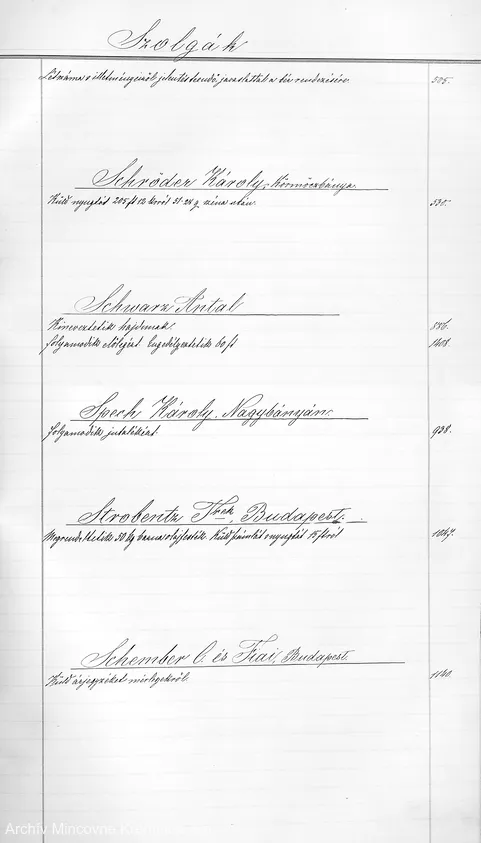 Szolgák
Létszáma s illetményeiről jelentés teendő, javaslattal a bér rendezésére 505.
Schröder Károly, Körmöczbánya
Küld nyugtát 205 ft 12 krról 51·28 q széna után. 530.
Schwarz Antal
Kineveztetik hajdunak. 886.
folyamodik előlegért Engedélyeztetik 60 ft 1408.
Spech Károly, Nagybányán
folyamodik jutalékért. 938.
Strobentz Tbek, Budapest.
Megrendeltetik 50 kg barna olajfesték. Küld számlát s nyugtát 15 ftról 1047.
Schember C. és Fiai, Budapest.
Küld árjegyzéket mérlegekről. 1140.
Archív Mincovne Kremnica